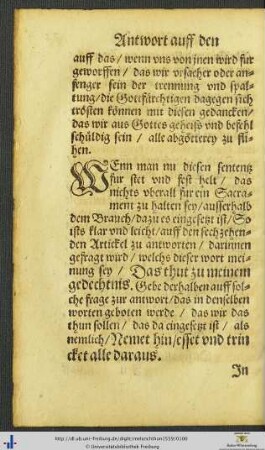 Antwort auff den
auff das / wenn vns von jnen wird fur
geworffen / das wir vrsacher oder an-
fenger sein der trennung vnd spal-
tung / die Gottfürchtigen dagegen sich
trösten können mit diesen gedancken /
das wir aus Gottes geheiß vnd befehl
schüldig sein / alle abgötterey zu flü-
hen.
WEnn man nu diesen sententz
fur stet vnd fest helt / das
nichts vberall fur ein Sacra-
ment zu halten sey / ausserhalb
dem Brauch / dazu es eingesetzt ist / So
ists klar vnd leicht / auff den sechzehen-
den Artickel zu antworten / darinnen
gefragt wird / welchs dieser wort mei-
nung sey / Das thut zu meinem
gedechtnis. Gebe derhalben auff sol-
che frage zur antwort / das in denselben
worten geboten werde / das wir das
thun sollen / das da eingesetzt ist / als
nemlich / Nemet hin / esset vnd trin
cket alle daraus.
In
© Universitätsbibliothek Freiburg
Baden-Württemberg